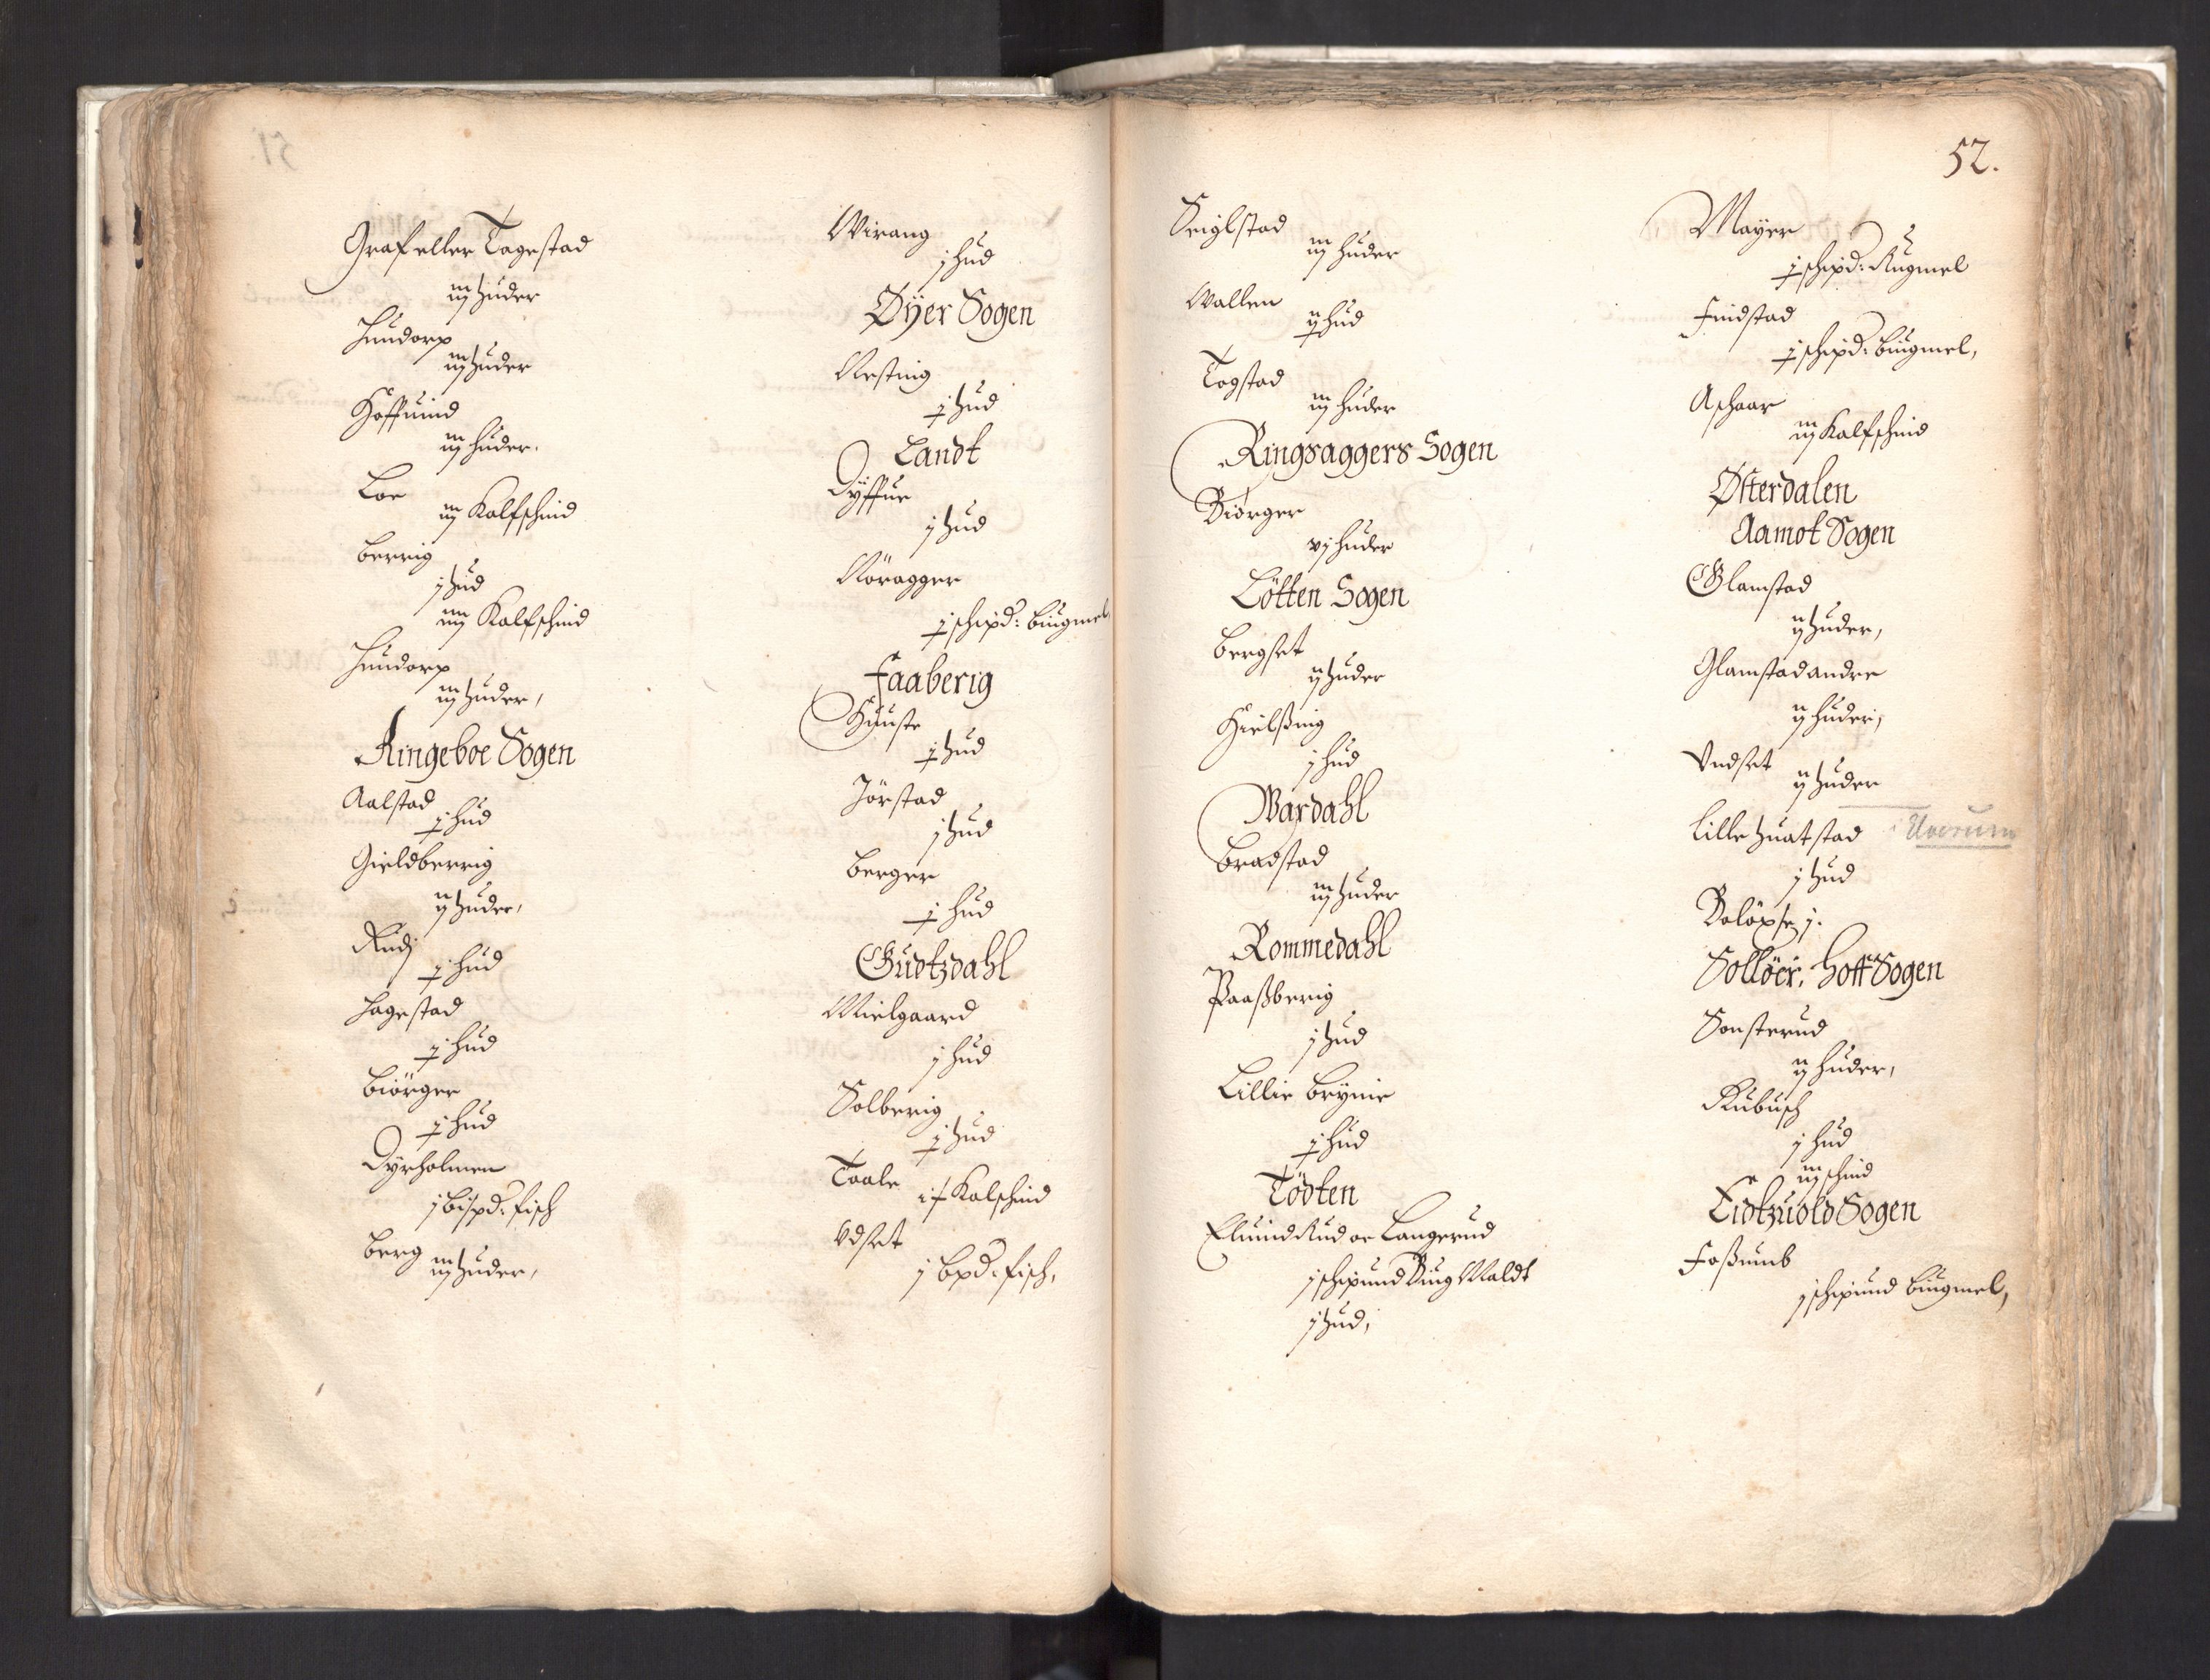 Graf eller Tagestad
iij huder
Hundorp
iij huder
Hoffuind
iij huder.
Loe
iij Kalfschind
Berrig
j hud
iiij Kalfschind
Hundorp
iij huder,
Ringeboe Sogen
Aalstad
j hud
Gieldberrig
ij huder,
Rudj
j hud
Hagestad
j hud
Biörger
j hud
Dÿrholmen
j bispd: fisch
Berg
iij huder,
Wirang
j hud
Øÿer Sogen
Resting
j hud
Landt
Dÿffue
j hud
Röragger
j schipd: bÿgmel
Faaberig
Huuste
j hud
Jörstad
j hud
Berger
j hud
Gudtzdahl
Mielgaard
j hud
Solberig
j hud
Taale
Kalschind
Vdset
j bpd: fisch,
52.
Seiglstad
iij huder
Wallen
j hud
Togstad
iij huder
Ringsaggers Sogen
Biörger
vj huder
Lötten Sogen
Bergset
ij huder
Hielßing
j hud
Wardahl
Bradstad
iij huder
Rommedahl
Paaßberig
j hud
Lillie Brÿnie
j hud
Tödten
Eluind Rud oc Langerud
j schipund Biug Maldt
j hud,
Mayer
j schipd: Rugmel
Findstad
j schipd: biugmel,
Aschaar
iij Kalfschind
Østerdalen
Aamot Sogen
Glamstad
ij huder,
Glamstad andre
ij huder,
Vndset
ij huder
Lille huatstad
j hud
Solöer, Hoff Sogen
Sonsterud
ij huder,
Rubusch
j hud
iij schind
Eidtzuold Sogen
Foßumb
j schipund biugmel,